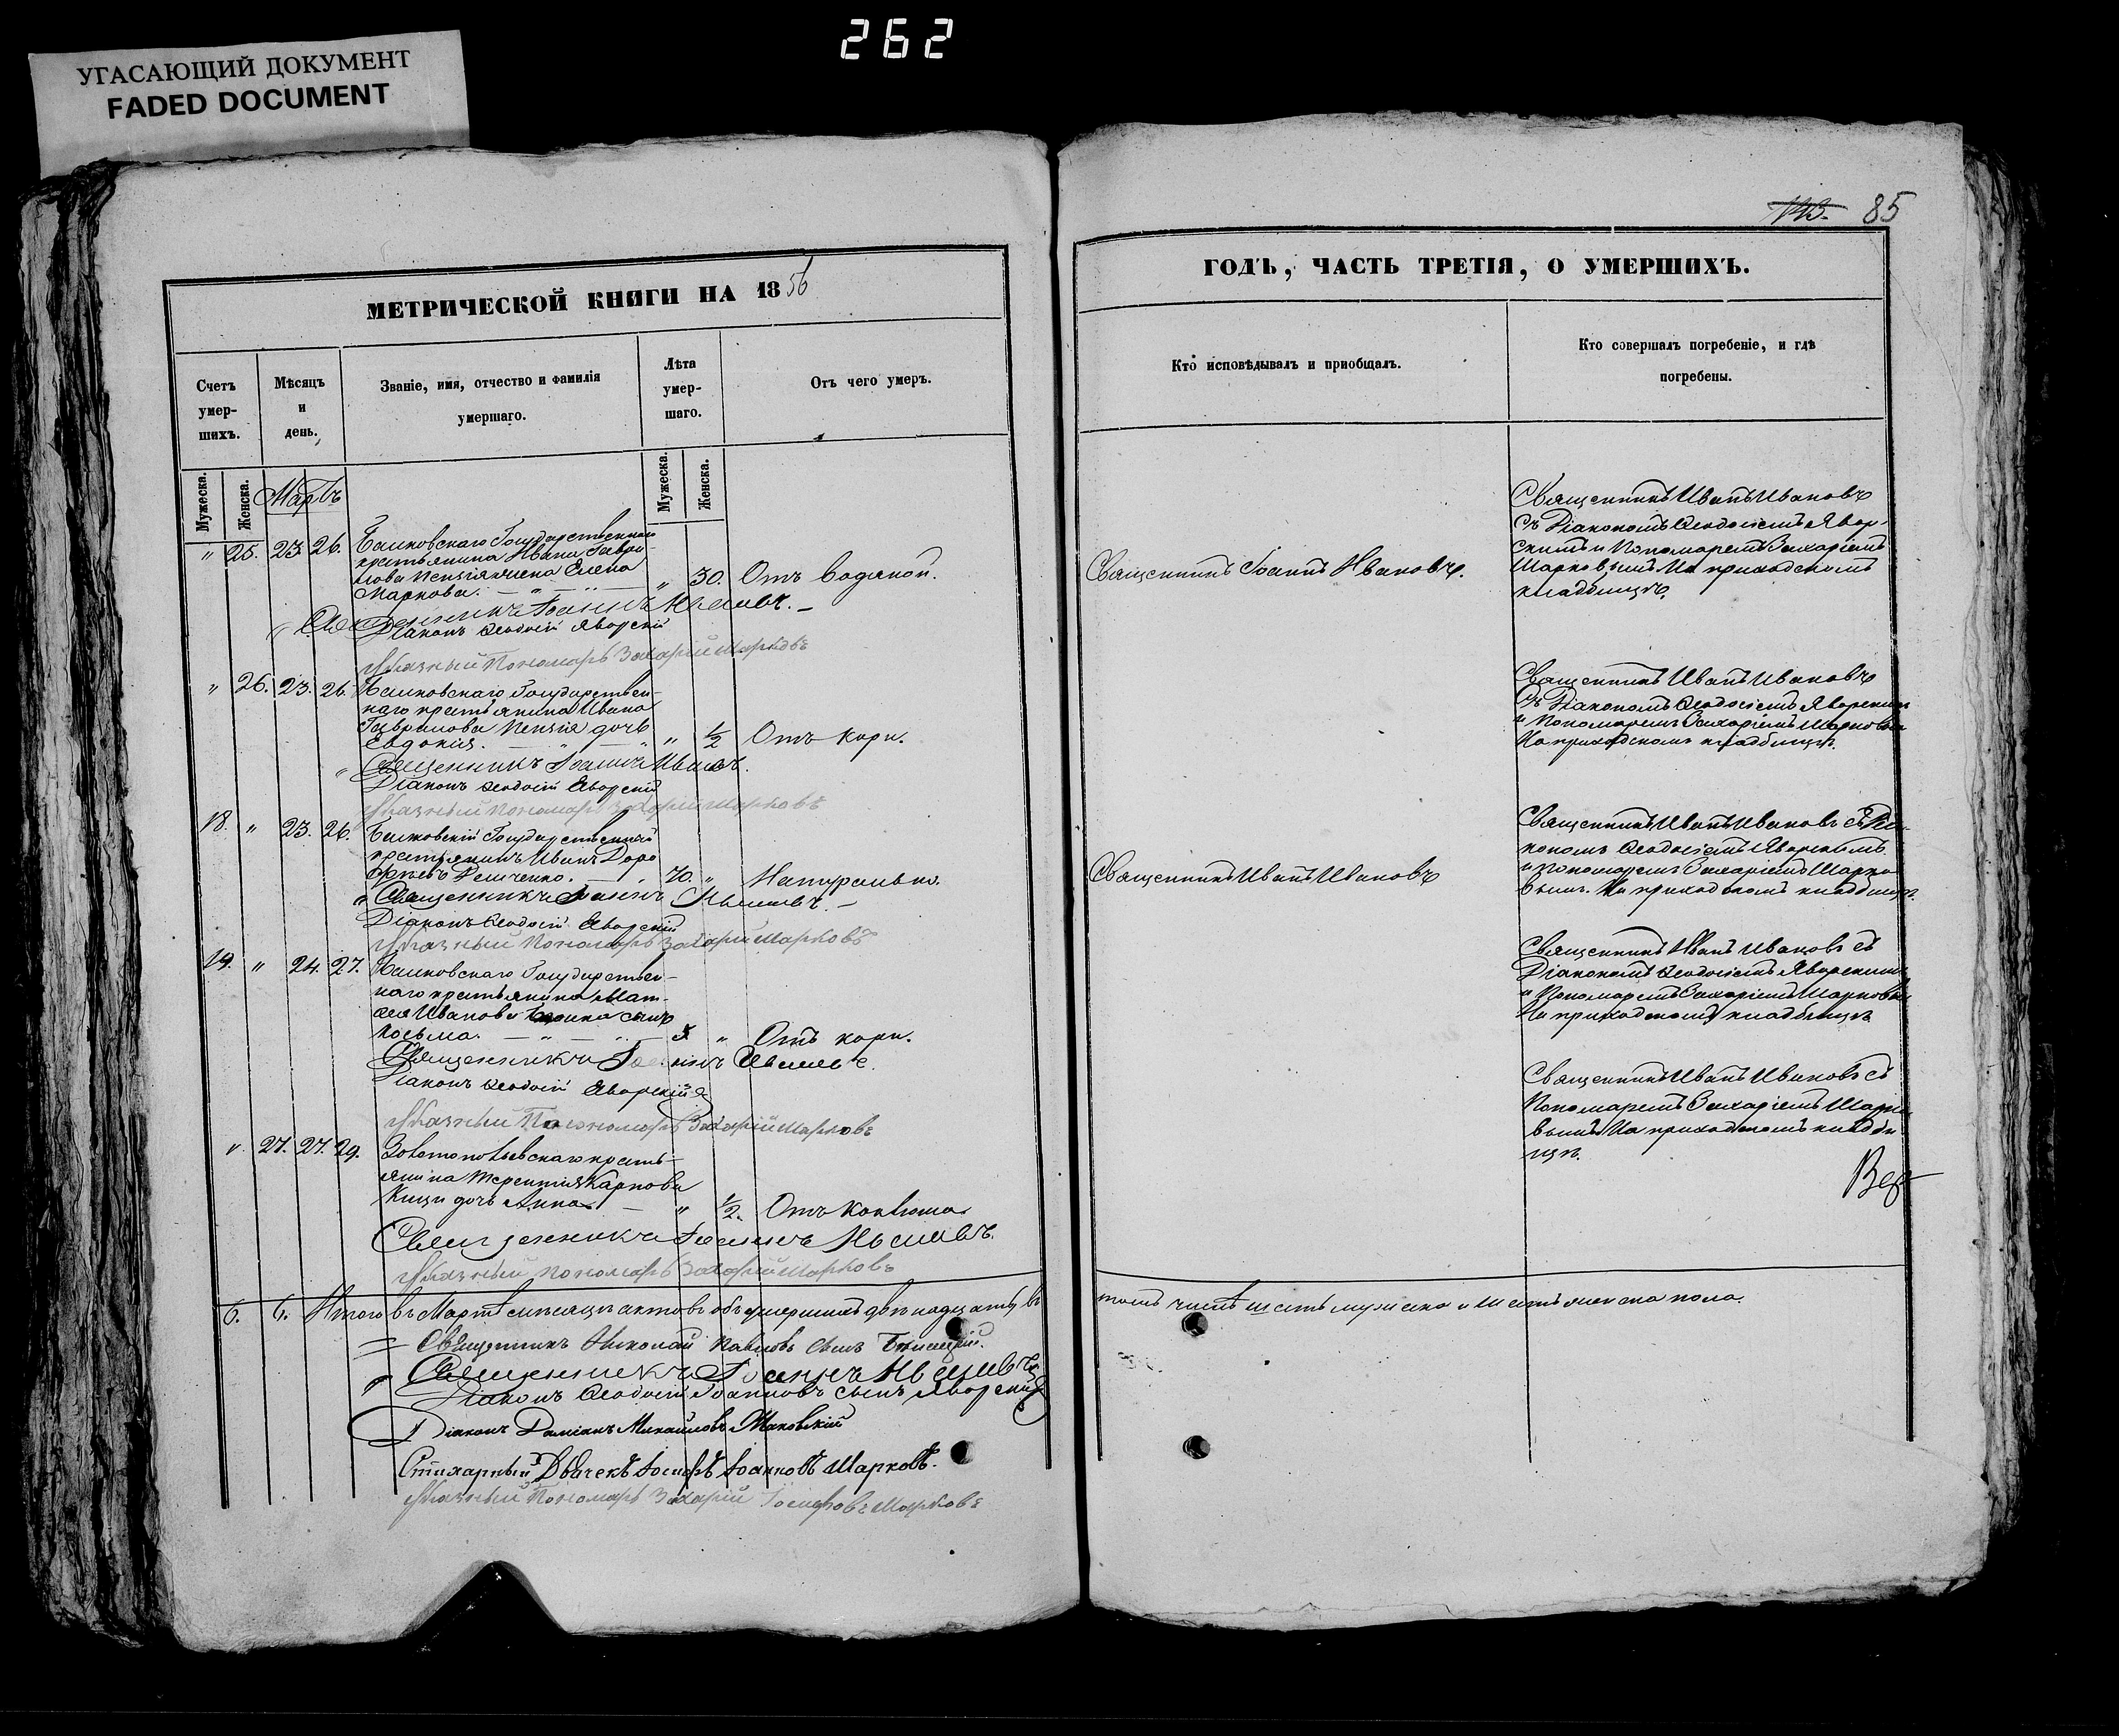 262
УГАСАЮЩИЙ ДОКУМЕНТ
FADED DOCUMENT
143. 85
МЕТРИЧЕСКОЙ КНИГИ НА 1856
ГОДЪ, ЧАСТЬ ТРЕТІЯ, О УМЕРШИХЪ.
Счетъ умер-шихъ.
Мѣсяцъ и день.
Званіе, имя, отчество и фамилія умершаго.
Лѣта умер-шаго.
Отъ чего умеръ.
Кто исповѣдывалъ и приобщалъ.
Кто совершалъ погребеніе, и гдѣ погребены.
Мужеска.
Женска.
Мартъ
Мужеска.
Женска.
" 25. 23. 26. Государственнаго
крестьянина Ивана Гаври-
лова жена Елена
Маркова. " 30. Отъ водяной.
Священникъ Іоаннъ Ивановъ.
Священникъ Иванъ Ивановъ
съ Діакономъ Ѳеодосіемъ Явор-
скимъ и Пономаремъ Захаріемъ
Марковымъ На приходскомъ
кладбищѣ.
Священникъ Іоаннъ Ивановъ.
Діаконъ Ѳеодосій Яворскій
Указный Пономарь Захарій Марковъ
" 26. 23. 26. Государствен-
наго крестьянина Ивана
Гаврилова дочь
Евдокія. " ½ Отъ кори.
Священникъ Иванъ Ивановъ
Съ Діакономъ Ѳеодосіемъ Яворскимъ
и Пономаремъ Захаріемъ Марковымъ
На приходскомъ кладбищѣ.
Священникъ Іоаннъ Ивановъ.
Діаконъ Ѳеодосій Яворскій
Указный Пономарь Захарій Марковъ
18. " 23. 26. Государственный
крестьянинъ Иванъ Доро-
феевъ 70. " Натурально.
Священникъ Иванъ Ивановъ
Священникъ Иванъ Ивановъ съ Діа-
кономъ Ѳеодосіемъ Яворскимъ
и Пономаремъ Захаріемъ Марко-
вымъ. На приходскомъ кладбищѣ.
Священникъ Іоаннъ Ивановъ.
Діаконъ Ѳеодосій Яворскій
Указный Пономарь Захарій Марковъ
19. " 24. 27. Государствен-
наго крестьянина Мат-
ѳея Иванова сынъ
Косьма. 5 " Отъ кори.
Священникъ Иванъ Ивановъ съ
Діакономъ Ѳеодосіемъ Яворскимъ
и Пономаремъ Захаріемъ Марковымъ
На приходскомъ кладбищѣ
Священникъ Іоаннъ Ивановъ.
Діаконъ Ѳеодосій Яворскій
Указный Пономарь Захарій Марковъ
" 27. 27. 29. кресть-
янина Терентія Карпова
дочь Анна " ½. Отъ коклюша
Священникъ Иванъ Ивановъ съ
Пономаремъ Захаріемъ Марко-
вымъ На приходскомъ кладби-
щѣ.
Священникъ Іоаннъ Ивановъ.
Указный Пономарь Захарій Марковъ
6. 6. Итого въ Мартѣ мѣсяцѣ актовъ объ умершихъ двѣнадцать, въ
томъ числѣ шесть мужеска и шесть женска пола.
Священникъ Николай Павловъ сынъ
Священникъ Іоаннъ Ивановъ
Діаконъ Ѳеодосій Іоанновъ сынъ Яворскій
Діаконъ Даміанъ Михайловъ Маковскій
Стихарный Дьячекъ Іосифъ Іоанновъ Марковъ.
Указный Пономарь Захарій Іосифовъ Марковъ